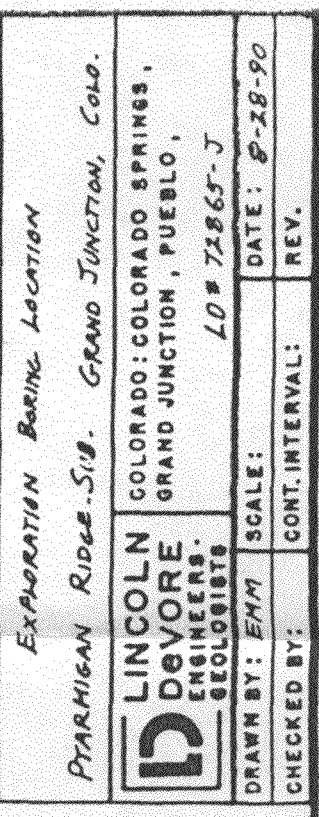 EXPLORATION BORING LOCATION
PTARMIGAN RIDGE. SUB. GRAND JUNCTION, COLO.
LINCOLN
DeVORE
ENGINEERS·
GEOLOGISTS
COLORADO: COLORADO SPRINGS,
GRAND JUNCTION, PUEBLO,
LD# 72865-J
DRAWN BY: EMM
SCALE:
DATE: 8-28-90
CHECKED BY:
CONT. INTERVAL:
REV.